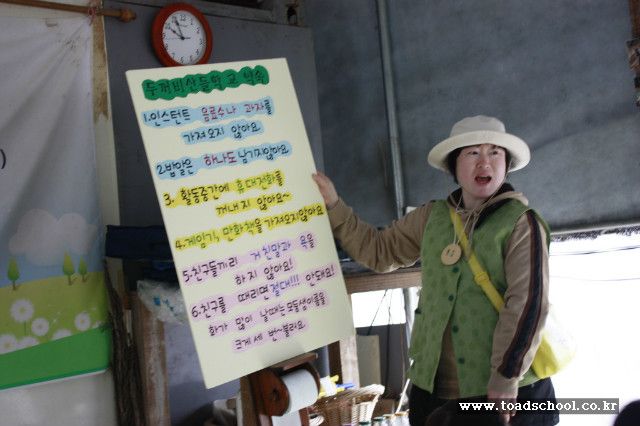 두꺼비산들학교 약속
1.인스턴트 음료수나 과자를
가져오지 않아요
2.밥알은 하나도 남기지않아요
3. 활동중간에 휴대전화를
꺼내지 않아요~
4.게임기, 만화책을 가져오지않아요
5.친구들끼리 거친말과 욕을
하지 않아요!
6.친구를 때리면 절대!!! 안돼요!
화가 많이 날때는 모둠샘이름을
크게 세 번~불러요.
www.toadschool.co.kr